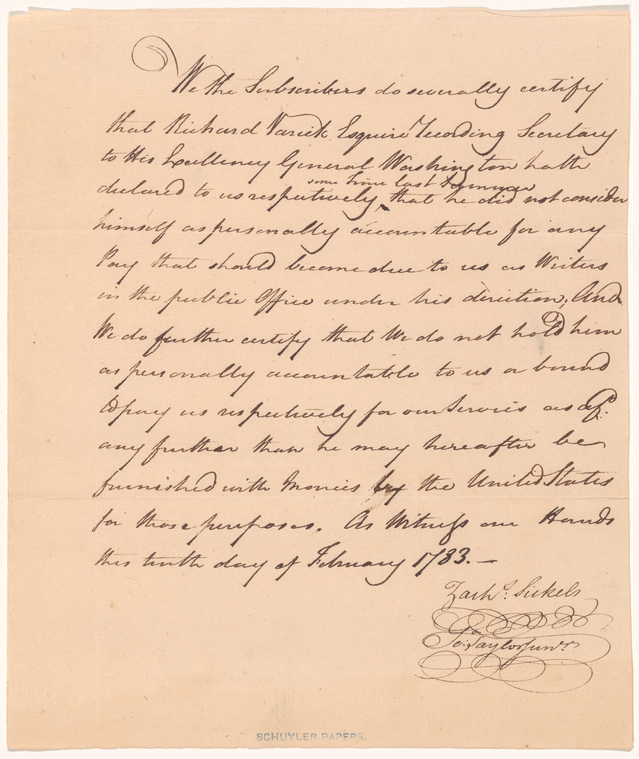 We the Subscribers do severally certify
that Richard Varick Esquire Recording Secretary
to His Excellency General Washington hath
some time last Summer
declared to us respectively ‸ that he did not consider
himself as personally accountable for any
Pay that should become due to us as Writers
in the public Office under his direction, And
We do further certify that We do not hold him
as personally accountable to us or bound
to pay us respectively for our Services as afs.
any further than he may hereafter be
furnished with Monies by the United States
for those purposes. As Witness our Hands
this tenth day of February 1783. —
Zachs. Sickels
Jo: Taylor Junr.
SCHUYLER PAPERS.